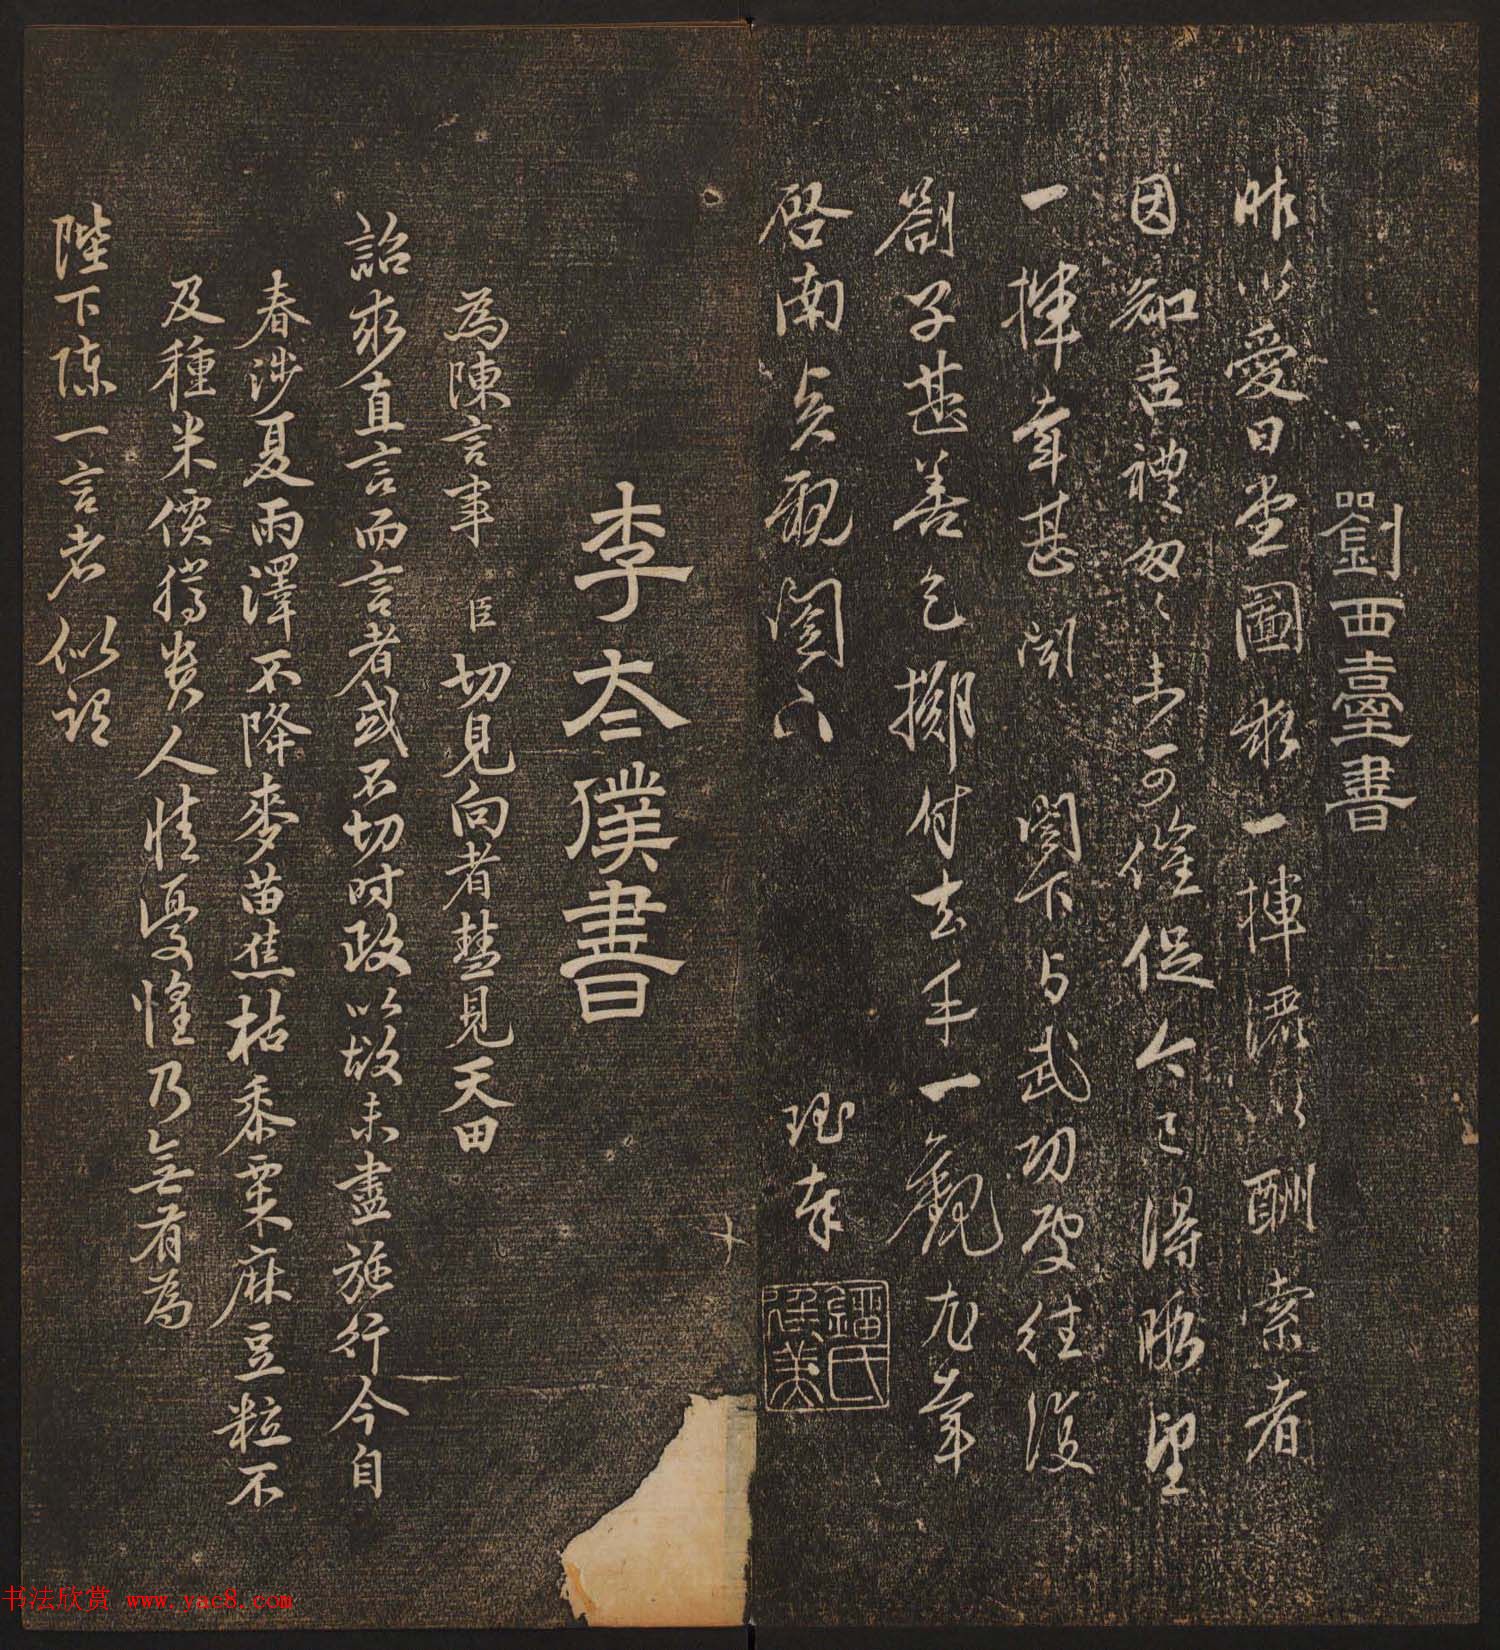 劉西臺書
昨以愛日堂圖求一揮灑以酬索者
因知吉禮匆〻未可催促今已得暇望
一揮幸甚聞 閣下与武功殿往復
劄子甚善乞擲付去手一觀尤幸
啓南 觀閣下 珏奉
李太僕書
為陳言事臣切見向者慧見天田
詔求直言而言者或不切时政以故未盡施行今自
春涉夏雨澤不降麥苗焦枯黍粟麻豆粒不
及種米價騰贵人情憂惶乃無有為
陛下陳一言者似
书法欣赏 www.yac8.com